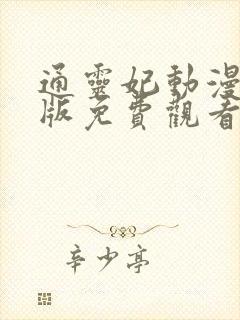 通靈妃動漫
版免費觀看
辛少亭